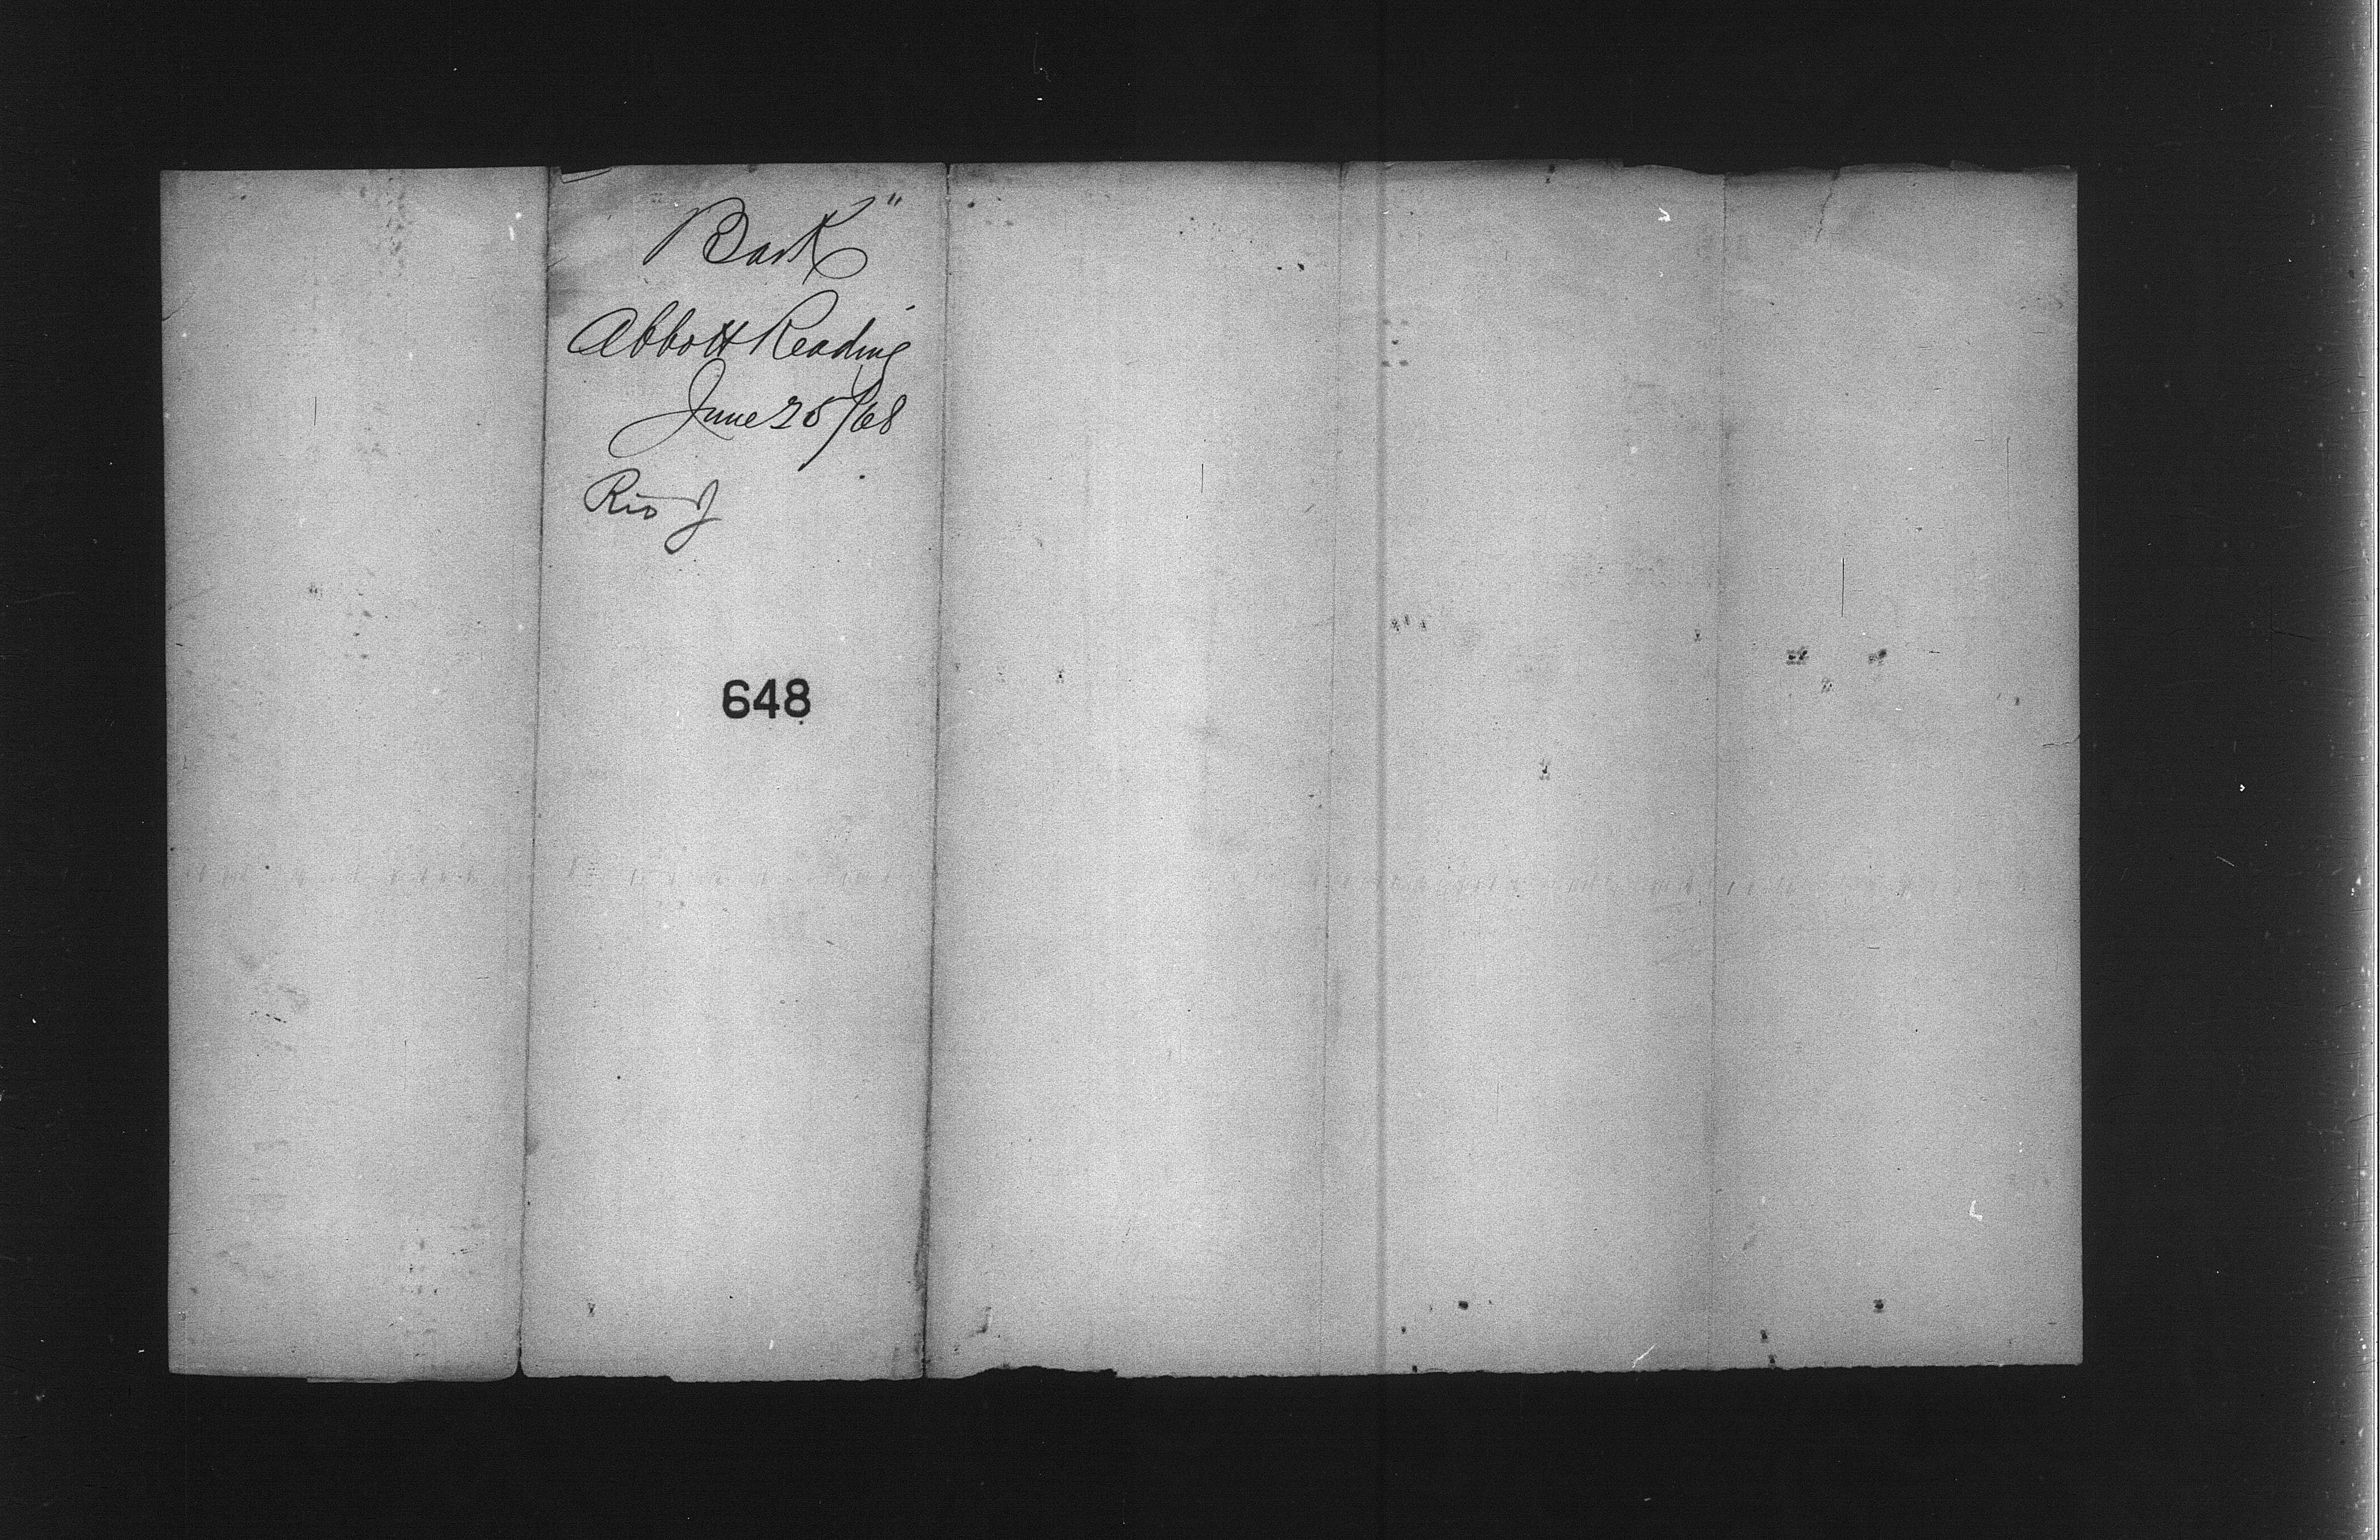 Bark"
Abbott Reading
June 25/68
Rio J
648